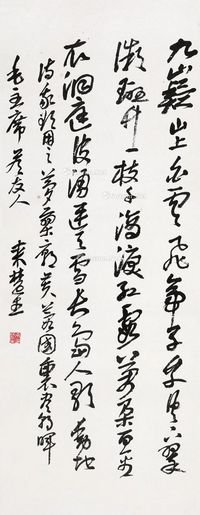 九嶷山上白雲飛帝子乘風下翠
微斑竹一枝千滴淚紅霞萬朵百重
衣洞庭波涌連天雪長島人歌動地
詩我欲因之夢寥廓芙蓉國裏盡朝暉
毛主席答友人